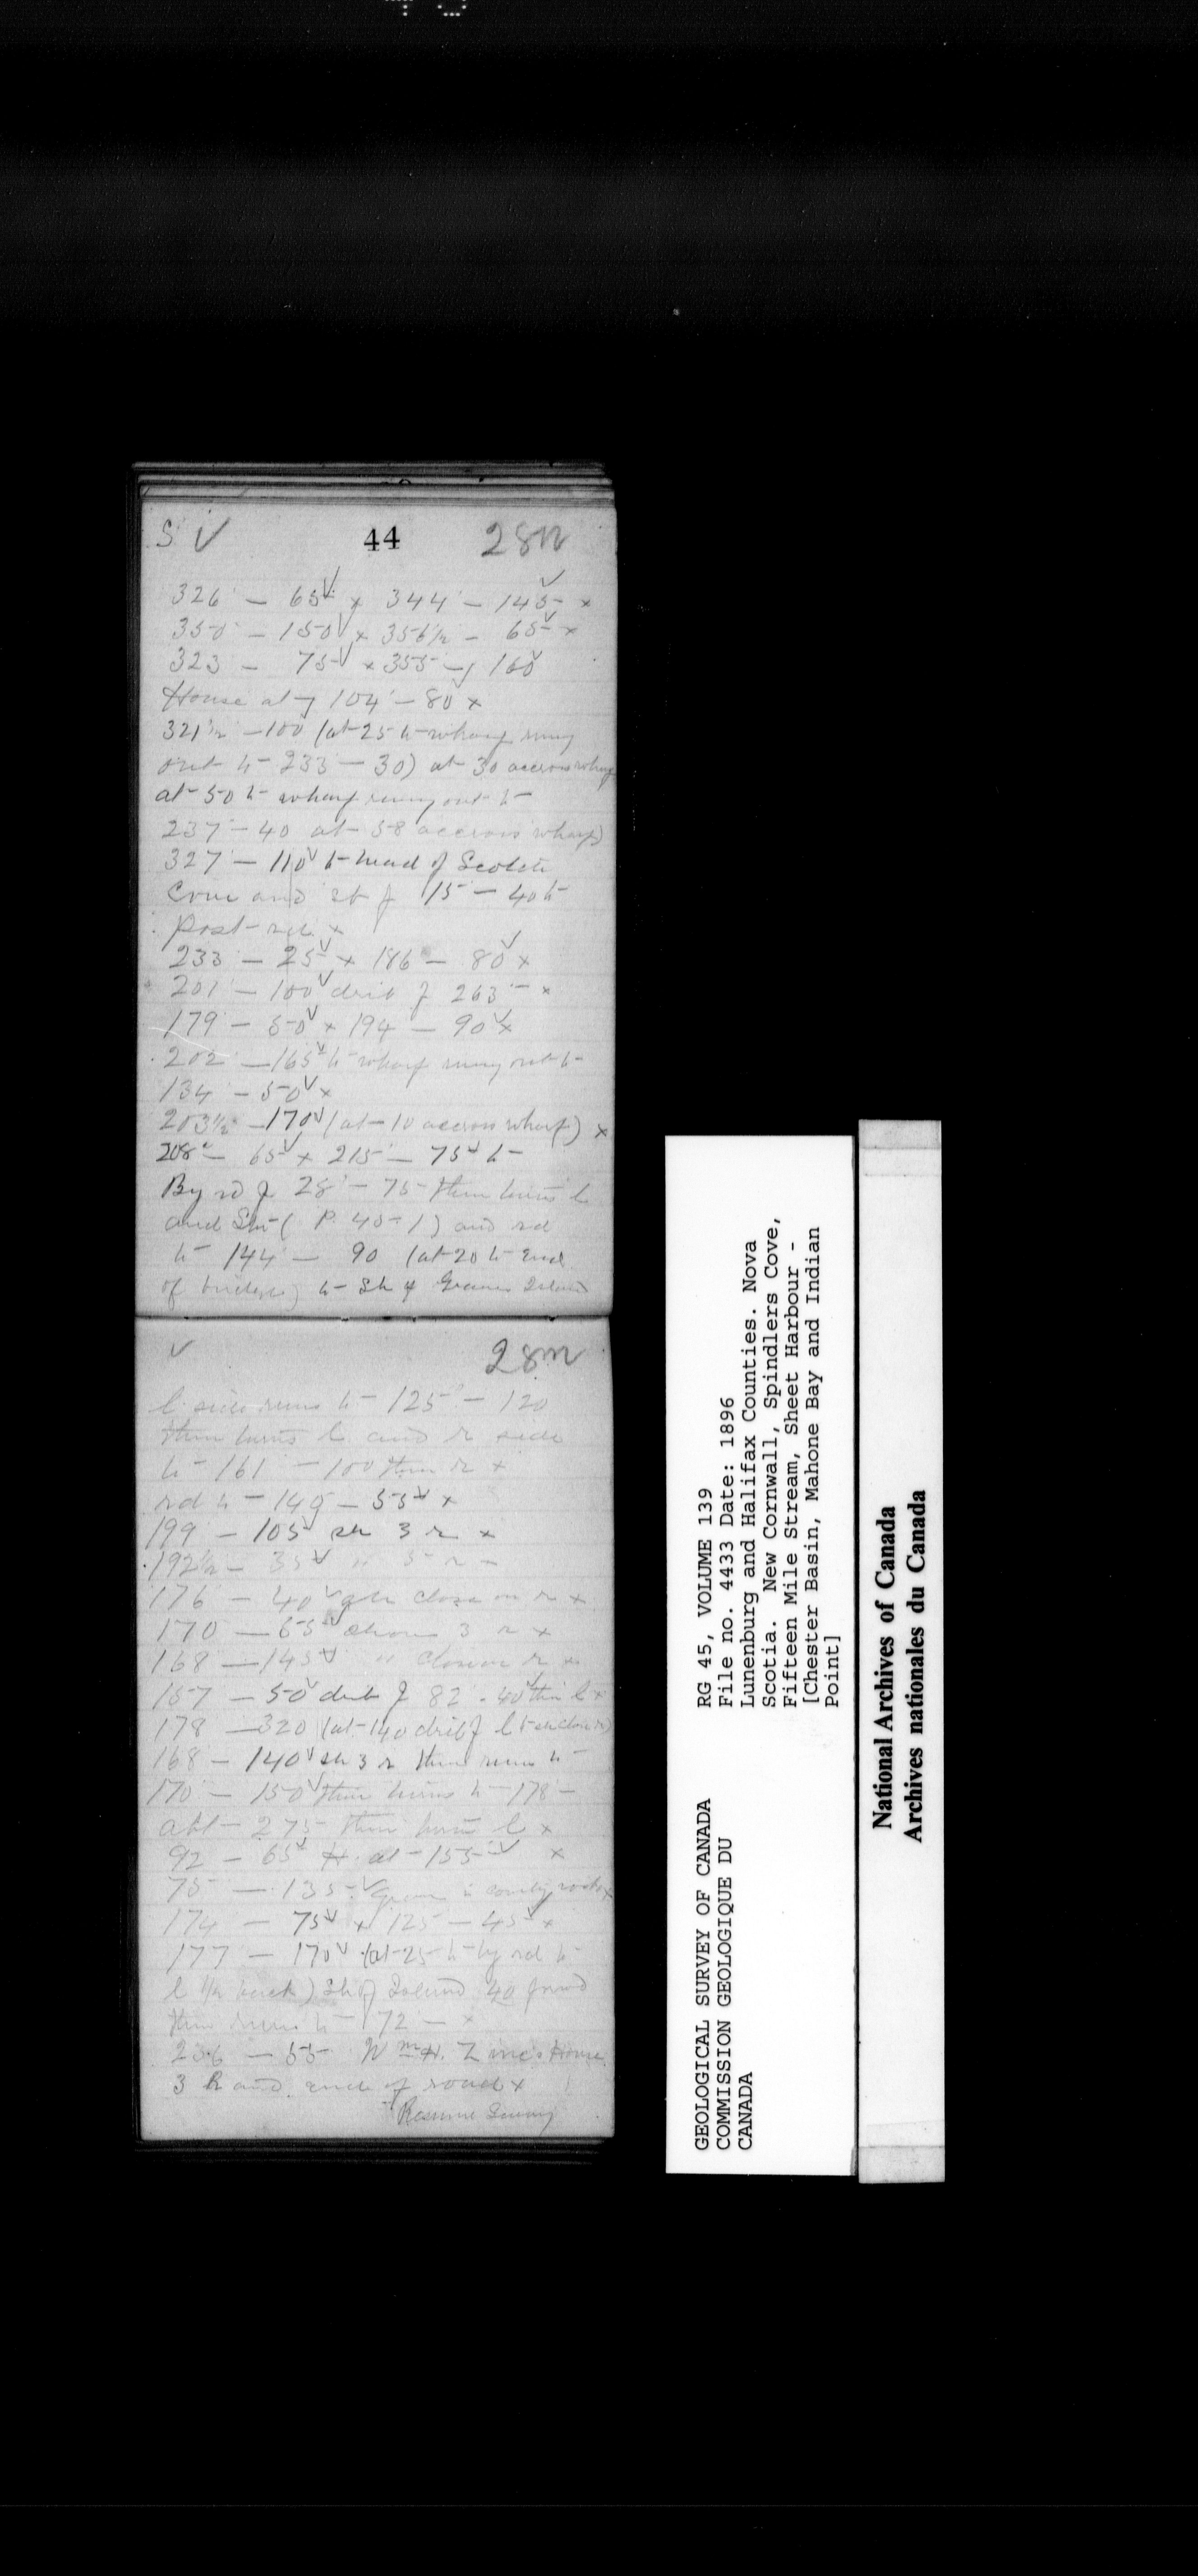 S √ 44 28m
326 - 65 √ x 344 - 145 √ x
350 - 150 √ x 356½ - 65 √ x
323 - 75 √ x 355 - 160 √
House at 104 - 80 x
321½ - 100 (at 25 to wharf runs
out to 233 - 30) at 30 accross wharf
at 50 to wharf runs out to
237 - 40 at 58 accross wharf)
327 - 110 √ to head of Scotch
Cove and 15 - 40 to
Post x
233 - 25 √ x 186 - 80 √ x
201 - 100 √ 263 - x
179 - 50 √ x 194 - 90 √ x
202 - 165 √ to wharf runs out to
134 - 50 √ x
203½ - 170 √ (at 10 accross wharf) x
208 - 65 √ x 215 - 75 √ to
By rd 28 - 75 then turns l
and (P. 45-1) and rd
to 144 - 90 (at 20 to end
of bridge) to Sh of Graves Island
√ 28m
l side runs to 125 - 120
then turns l and r side
to 161 - 100 then r x
rd to 149 - 55 √ x
199 - 105 sh 3 r x
192½ - 35 √ " 5 r -
176 - 40 √ close on r x
170 - 65 √ shore 3 r x
168 - 145 √ " close on r x
157 - 50 √ 82 - 40 then l x
178 - 320 (at 140
168 - 140 √ sh 3 r then runs to
170 - 150 √ then turns to 178 -
abt 275 then turns l x
92 - 65 √ H. at 155 √ x
75 - 135 √
174 - 75 √ x 125 - 45 √ x
177 - 170 √ (at 25 to by rd to
l ½ back) Sh of Island 40
then runs to 172 - x
236 - 55 Wm H. Zinc's House
3 R and end of road x
GEOLOGICAL SURVEY OF CANADA
COMMISSION GEOLOGIQUE DU
CANADA
RG 45, VOLUME 139
File no. 4433 Date: 1896
Lunenburg and Halifax Counties. Nova
Scotia. New Cornwall, Spindlers Cove,
Fifteen Mile Stream, Sheet Harbour -
[Chester Basin, Mahone Bay and Indian
Point]
National Archives of Canada
Archives nationales du Canada